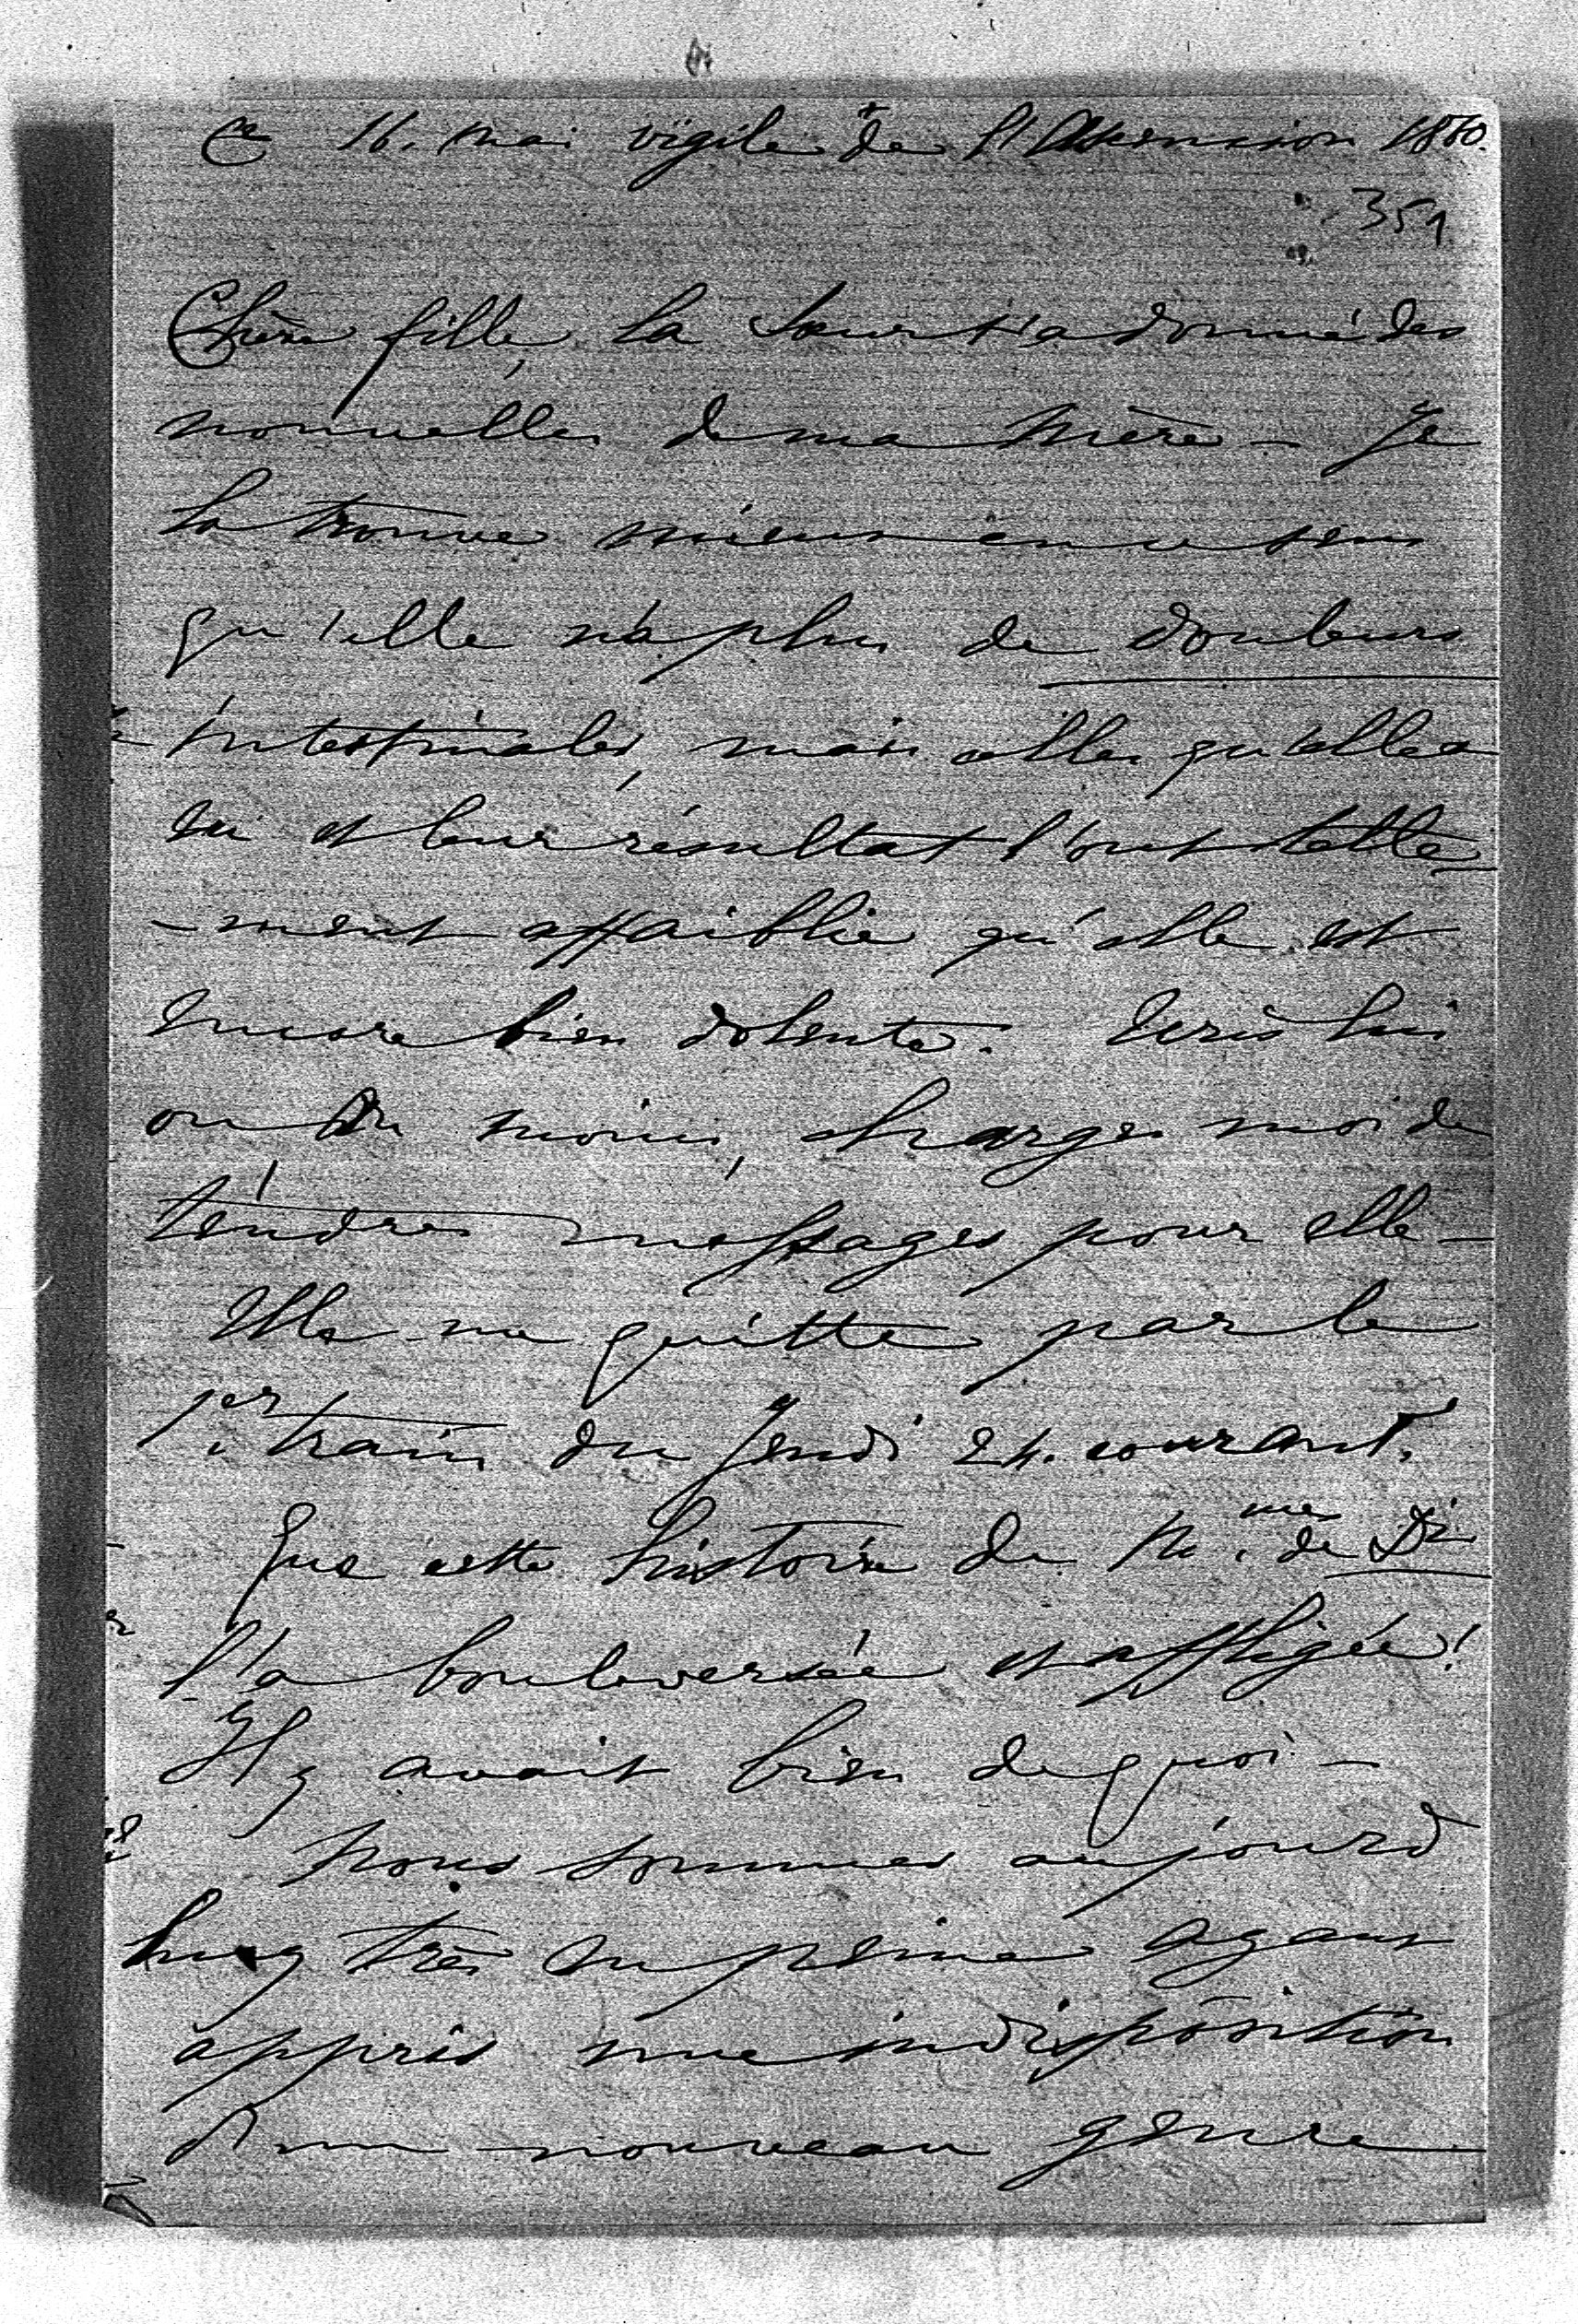 Ce 16. mai vigile de l'Ascension 1860.
351
Chère fille, la Sœur t'a donné des
nouvelles de ma Mère – Je
la trouve mieux en ce sens
qu'elle n'a plus de douleurs
intestinales, mais celles qu'elle a
eu et leur résultat l'ont telle
-ment affaiblie qu'elle est
encore bien dolente. Ecris lui
ou du moins, charges moi de
tendres messages pour elle –
Elle me quitte par le
1er train du Jeudi 24. courant.
Que cette histoire de Mmes de Di
l'a bouleversée et affligée!
Il y avait bien de quoi –
Nous sommes aujourd
huy très en peine ayant
appris une indisposition
d'un nouveau genre